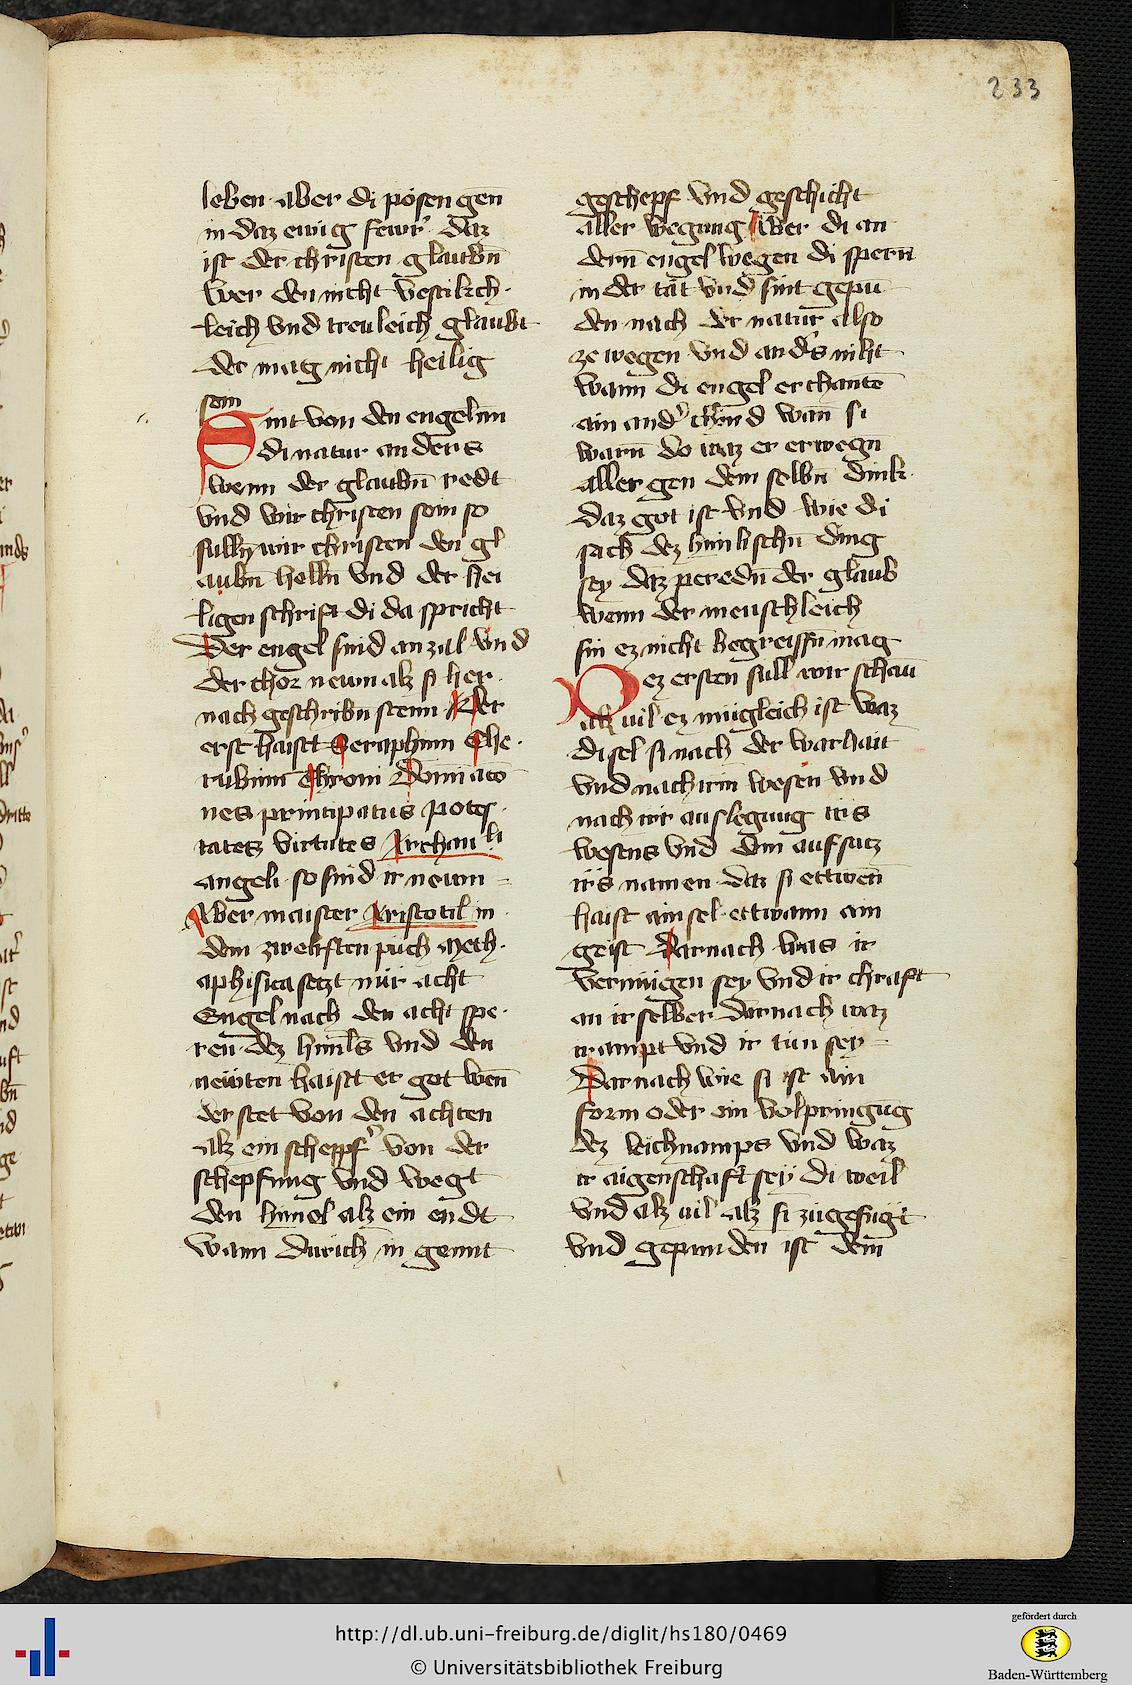 233
leben · aber di pösen gen
in daz ewig fewr · daz
ist der christen glaubn̄
Wer den nicht vestikch·
leich vnd treuleich glaubt
der mag nicht heilig
sein
Sint von den engelnn
di natur anders
wenn der glaubn̄ redt
vnd wir christen sein so
sulln wir christen den gl
aubn̄ helln vnd der hei
ligen schrift di da spricht
Der engel sind an zal vnd
der chor newn alz si her·
nach geschribn stenn Der
erst haist Seraphinn Che·
rubinn Throni Dominacō
nes principatus potes·
tates virtutes Archan li
angeli · so sind ir newn =
Aber maister Aristotil in
dem zweliften püch Meth·
aphisica setzt nür acht
Engel nach den acht spe·
ren dez himls vnd den
newten haist er got wen̄
der stet von den achten
alz ein schepf' von der
schepfung vnd wegt
den himel alz ein endt
Wann durich in genut
geschepf vnd geschicht
aller wegung Aber di an
dern engel wegen di spern̄
in der tat vnd sint gepū
den nach der natur also
ze wegen vnd and's niht
wann di engel erchantē
ain and' vnd wan̄ si
warn̄ do waz er erwegn̄
aller gen dem selbn̄ dink
daz got ist vnd wie di
sach dez himlischn̄ ding
sey daz peredn̄ der glaub
wenn der menschleich
sin ez nicht begreiffn mag
Dez ersten sull wir schaū
alz uil ez mügleich ist waz
di sel si nach der warhait
vnd nach irm wesen vnd
nach irr auslegung irs
wesens vnd dm aufsatz
irs namen · daz si ettwen̄
haist ain sel · ettwann ain
geist Darnach was ir
vermügen sey vnd ir chraft
an ir selber Darnach waz
ir ampt vnd ir tün sey =
Darnach wie si ist ain
form oder ein volpringūg
dez leichnamps vnd waz
ir aigenschaft sey di weil
vnd alz uil alz si zügefügt
vnd gepunden ist dem
http://dl.ub.uni-freiburg.de/diglit/hs180/0469
© Universitätsbibliothek Freiburg
gefördert durch
Baden-Württemberg